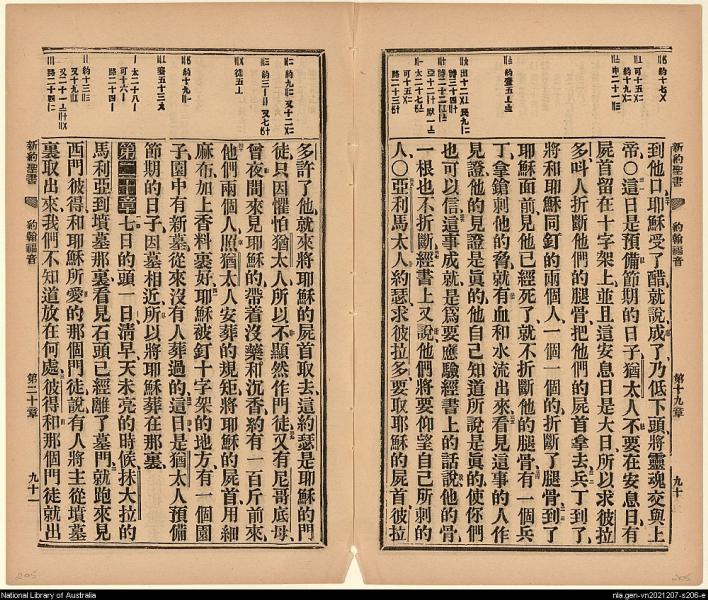 新約聖書
約翰福音
第十九章
九十
到他口、耶穌受了醋、就說、成了、乃低下頭、將靈魂交與上
帝、○這日是預備節期的日子、猶太人不要在安息日、有
屍首留在十字架上、並且這安息日是大日、所以求彼拉
多叫人折斷他們的腿骨、把他們的屍首拿去、兵丁到了、
將和耶穌同釘的兩個人、一個一個的折斷了腿骨、到了
耶穌面前、見他已經死了、就不折斷他的腿骨、有一個兵
丁、拿鎗刺他的脅、就有血和水流出來、看見這事的人作
見證、他的見證是真的、他自己知道所說是真的、使你們
也可以信、這事成就、是爲要應驗經書上的話說、他的骨、
一根也不折斷、經書上又說、他們將要仰望自己所刺的
人、○亞利馬太人約瑟、求彼拉多要取耶穌的屍首、彼拉
多許了他、就來將耶穌的屍首取去、這約瑟是耶穌的門
徒、只因懼怕猶太人、所以不顯然作門徒、又有尼哥底母、
曾夜間來見耶穌的、帶着沒藥和沉香、約有一百斤前來、
他們兩個人、照猶太人安葬的規矩、將耶穌的屍首用細
麻布加上香料裹好、耶穌被釘十字架的地方、有一個園
子、園中有新墓、從來沒有人葬過的、這日是猶太人預備
節期的日子、因墓相近、所以將耶穌葬在那裏、
第二十章七日的頭一日、清早天未亮的時候、抹大拉的
馬利亞到墳墓那裏、看見石頭已經離了墓門、就跑來見
西門彼得、和耶穌所愛的那個門徒說、有人將主從墳墓
裏取出來、我們不知道放在何處、彼得和那個門徒就出
新約聖書
約翰福音
第二十章
九十一
National Library of Australia
nla.gen-vn2021207-s206-e